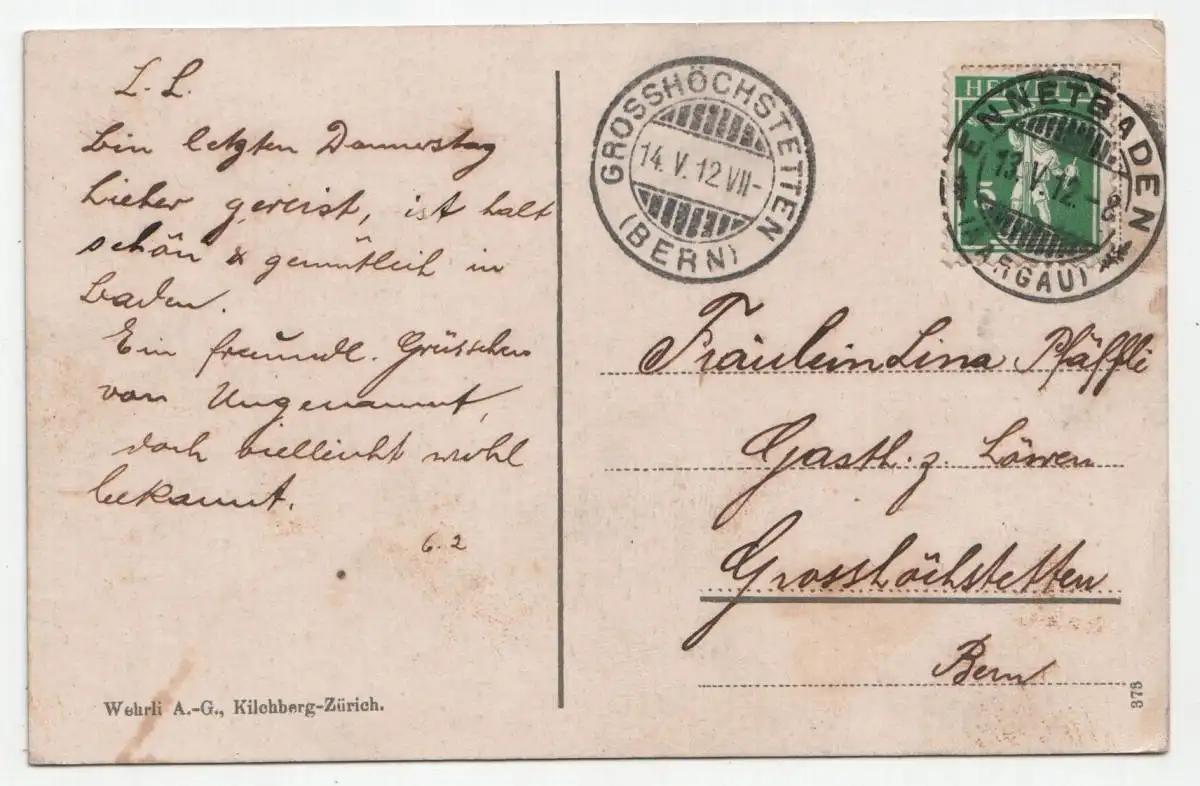 L. L.
Bin letzten Donnerstag
hieher gereist, ist halt
schön & gemütlich in
Baden.
Ein freundl. Grüsschen
von Ungenannt,
doch vielleicht wohl
bekannt.
6.2
Wehrli A.-G., Kilchberg-Zürich.
GROSSHÖCHSTETTEN
14. V. 12 VII-
(BERN)
HELVETI
5
ENNETBADEN
13. V. 12. -8
(AARGAU)
Fräulein Lina Pfäffli
Gasth. z. Löwen
Grosshöchstetten
Bern
373